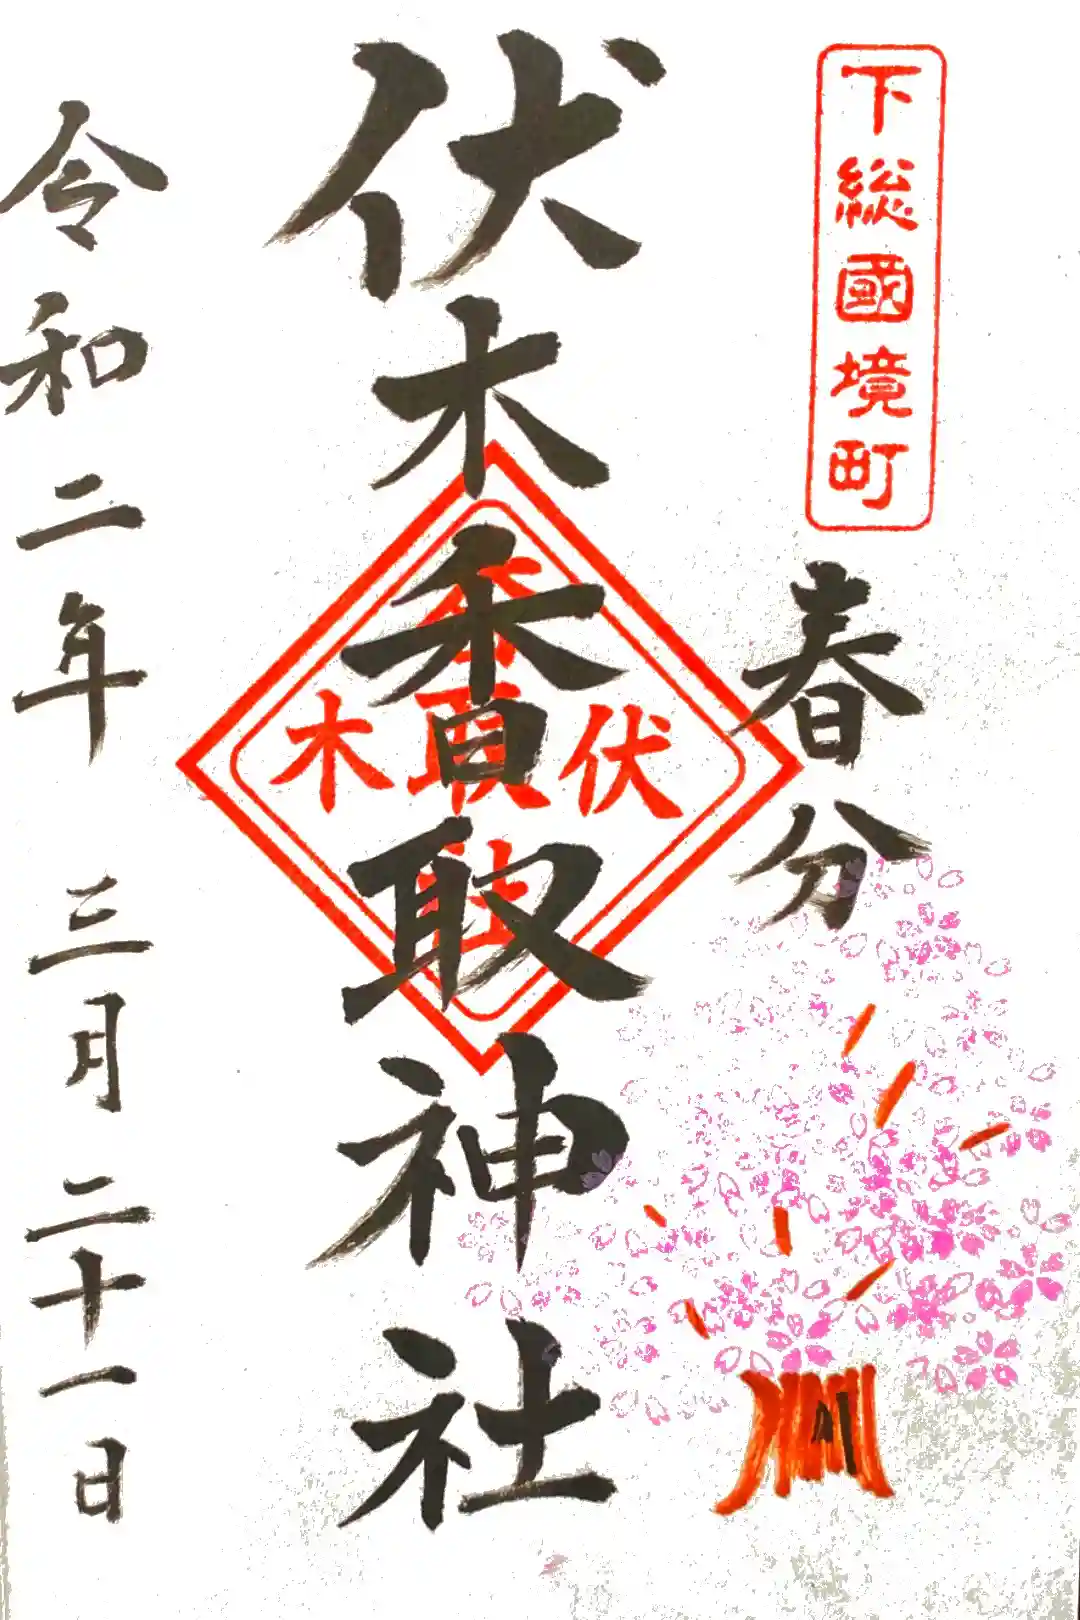 下総國境町
春分
伏木香取神社
伏 香取社 木
令和二年 三月二十一日